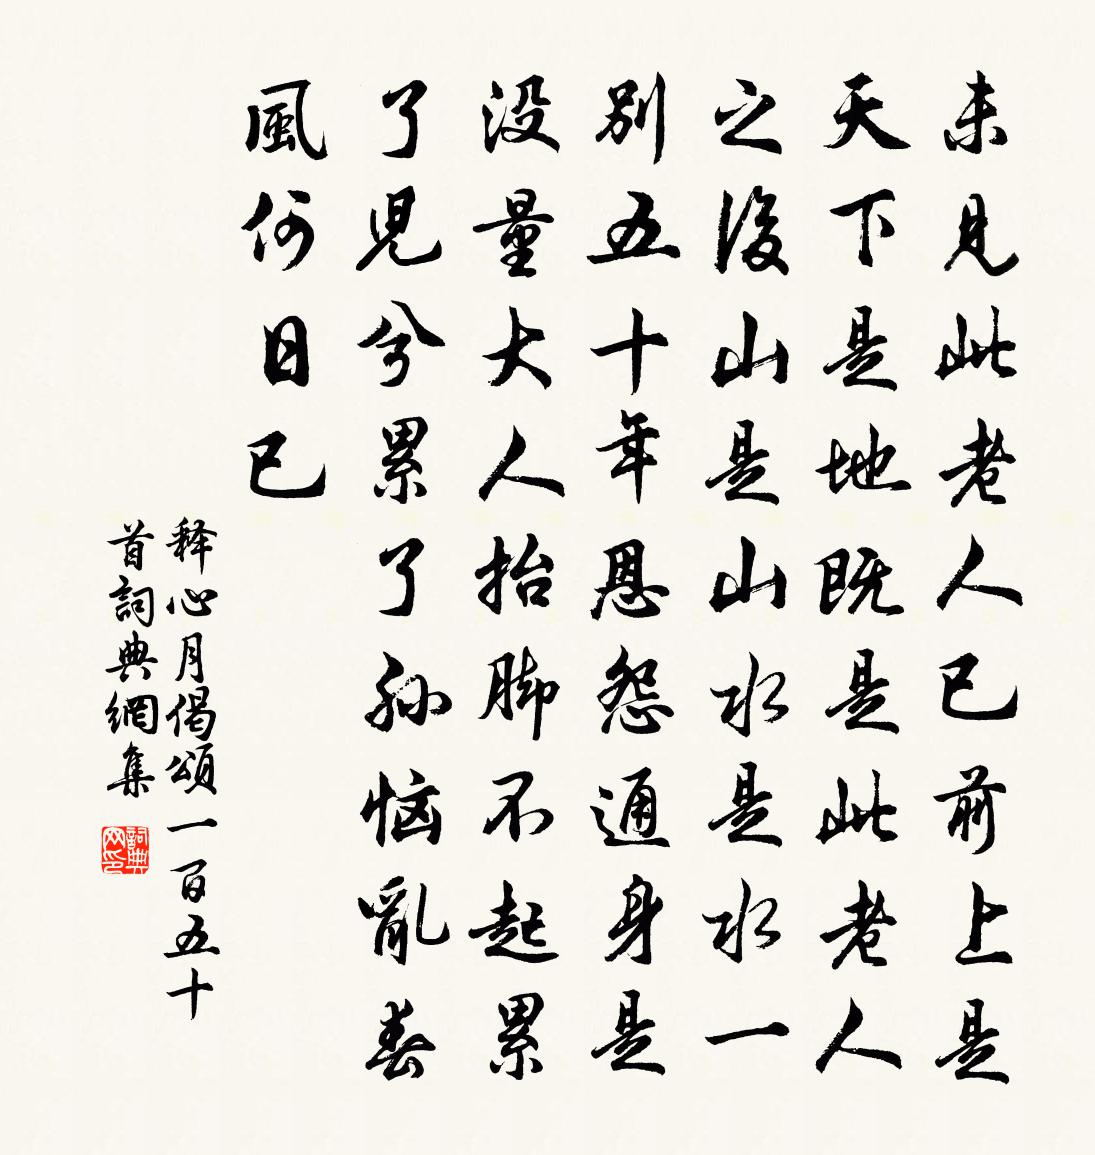 未見此老人已前上是
天下是地既是此老人
之後山是山水是水一
別五十年恩怨通身是
没量大人抬脚不起累
了児兮累了孫惱亂春
風何日已
释心月偈頌一百五十
首詞典網集
詞典网印